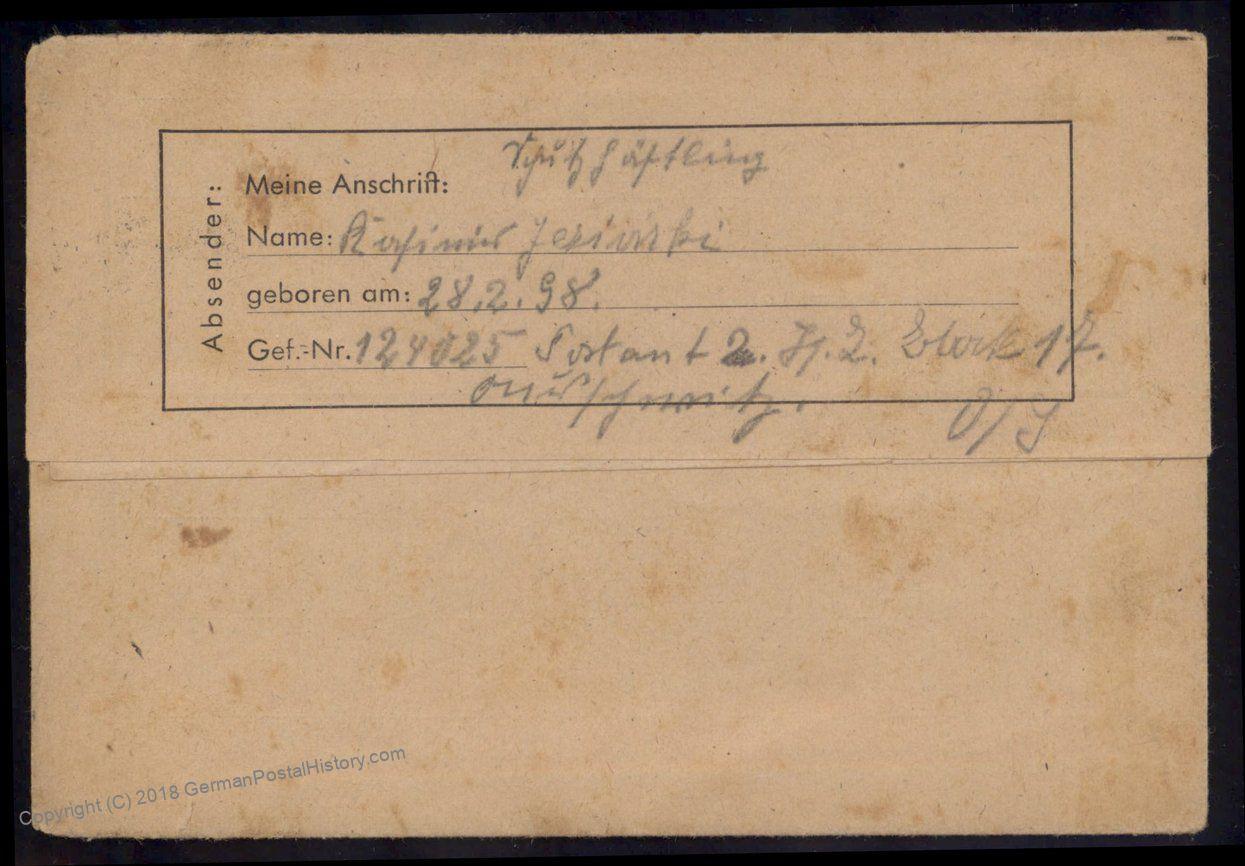 Absender:
Schutzhäftling
Meine Anschrift:
Name: Kasimir
geboren am: 28.2.98.
Gef.-Nr. 124025 Postamt 2. Block 17.
Auschwitz. O/S
Copyright (C) 2018 GermanPostalHistory.com